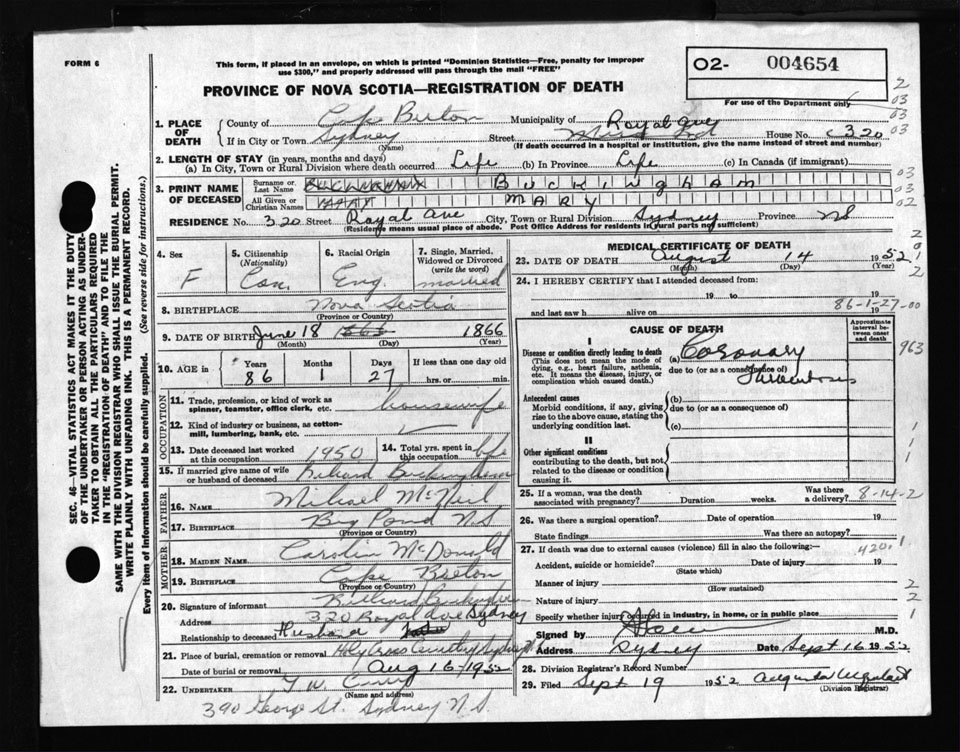 FORM 6
This form, if placed in an envelope, on which is printed "Dominion Statistics—Free, penalty for improper
use $300," and properly addressed will pass through the mail "FREE"
O2- 004654
For use of the Department only
PROVINCE OF NOVA SCOTIA—REGISTRATION OF DEATH
1. PLACE OF DEATH
County of Cape Breton Municipality of
If in City or Town Sydney (Name) Street Royal Ave House No. 320
(If death occurred in a hospital or institution, give the name instead of street and number)
2. LENGTH OF STAY (in years, months and days)
(a) In City, Town or Rural Division where death occurred Life (b) In Province Life (c) In Canada (if immigrant)
3. PRINT NAME OF DECEASED
Surname or Last Name BUCKINGHAM BUCKINGHAM
All Given or Christian Names MARY MARY
RESIDENCE No. 320 Street Royal Ave City, Town or Rural Division Sydney Province NS
(Residence means usual place of abode. Post Office Address for residents in rural parts not sufficient)
4. Sex F
5. Citizenship (Nationality) Can.
6. Racial Origin Eng.
7. Single, Married, Widowed or Divorced (write the word) married
8. BIRTHPLACE Nova Scotia
(Province or Country)
9. DATE OF BIRTH June 18 1866 1866
(Month) (Day) (Year)
10. AGE in Years 86 Months 1 Days 27 If less than one day old hrs. or min.
OCCUPATION
11. Trade, profession, or kind of work as spinner, teamster, office clerk, etc. housewife
12. Kind of industry or business, as cotton-mill, lumbering, bank, etc.
13. Date deceased last worked at this occupation 1950
14. Total yrs. spent in this occupation life
15. If married give name of wife or husband of deceased Richard Buckingham
FATHER
16. NAME Michael McNeil
17. BIRTHPLACE Big Pond N.S
(Province or Country)
MOTHER
18. MAIDEN NAME Carolin McDonald
19. BIRTHPLACE Cape Breton
(Province or Country)
20. Signature of informant Richard Buckingham
Address 320 Royal Ave Sydney
Relationship to deceased Husband
21. Place of burial, cremation or removal Holy Cross Cemetery Sydney
Date of burial or removal Aug 16-1952
22. UNDERTAKER T W Curry
(Name and address)
390 George St. Sydney N.S.
MEDICAL CERTIFICATE OF DEATH
23. DATE OF DEATH August 14 1952
(Month) (Day) (Year)
24. I HEREBY CERTIFY that I attended deceased from:
19 to 19
and last saw h alive on 19
86-1-27-00
CAUSE OF DEATH
Approximate interval between onset and death
I
Disease or condition directly leading to death (a) Coronary
(This does not mean the mode of dying, e.g., heart failure, asthenia, etc. It means the disease, injury, or complication which caused death.)
due to (or as a consequence of) Thrombosis
Antecedent causes (b)
Morbid conditions, if any, giving rise to the above cause, stating the underlying condition last.
due to (or as a consequence of)
(c)
II
Other significant conditions
contributing to the death, but not related to the disease or condition causing it.
963
25. If a woman, was the death associated with pregnancy? Duration weeks. Was there a delivery?
8-14-2
26. Was there a surgical operation? Date of operation 19
State findings Was there an autopsy?
27. If death was due to external causes (violence) fill in also the following:—
420.1
Accident, suicide or homicide? (State which) Date of injury 19
Manner of injury
(How sustained)
Nature of injury
Specify whether injury occurred in industry, in home, or in public place
Signed by M.D.
Address Sydney Date Sept 16 1952
28. Division Registrar's Record Number
29. Filed Sept 19 1952
(Division Registrar)
SEC. 46—VITAL STATISTICS ACT MAKES IT THE DUTY
OF THE UNDERTAKER OR PERSON ACTING AS UNDER-
TAKER TO OBTAIN ALL THE PARTICULARS REQUIRED
IN THE "REGISTRATION OF DEATH" AND TO FILE THE
SAME WITH THE DIVISION REGISTRAR WHO SHALL ISSUE THE BURIAL PERMIT.
WRITE PLAINLY WITH UNFADING INK. THIS IS A PERMANENT RECORD.
Every item of information should be carefully supplied. (See reverse side for instructions.)